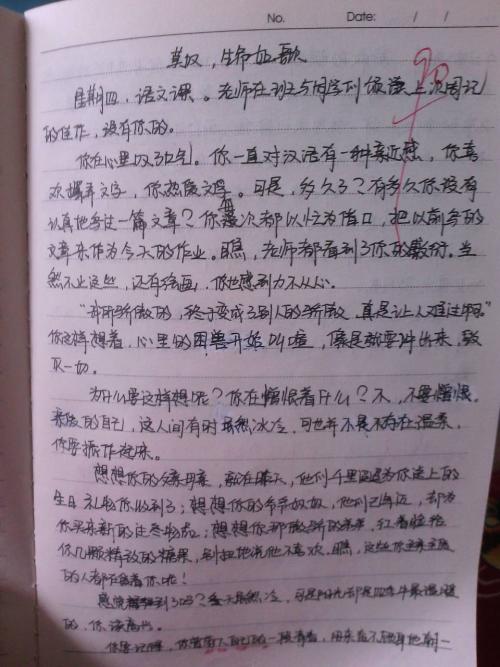 No. Date: / /
莫叹,生命如歌
90
星期四,语文课。老师在班上与同学们 读上次周记
的佳作,没有你的。
你在心里叹了口气。你一直对汉语有一种亲近感,你喜
欢摆弄文字,你热爱文学。可是,多久了?有多久你没有
认真地写过一篇文章?你每次都以忙为借口,把以前写的
文章来作为今天的作业。瞧,老师都看到了你的敷衍。当
然不止这些,还有绘画,你也感到力不从心。
“ 骄傲的,终于变成了别人的骄傲,真是让人难过啊。”
你这样想着,心里的困兽开始叫喧,像是就要冲出来,毁
灭一切。
为什么要这样想呢?你在憎恨着什么?不,不要憎恨
的自己,这人间有时虽然冰冷,可也并不是不存在温柔,
你要振作起来。
想想你的父亲母亲,就在昨天,他们千里迢迢为你送上的
生日礼物你收到了;想想你的爷爷奶奶,他们已年迈,却为
你买来新的 ;想想你那 的弟弟,红着脸给
你几颗精致的糖果,别扭地说他不喜欢。瞧,这些你
的人都在 着你呢!
感觉 到了吗?冬天虽然冷,可是阳光却是四季中最温暖
的,你该高兴。
你要记得,你曾